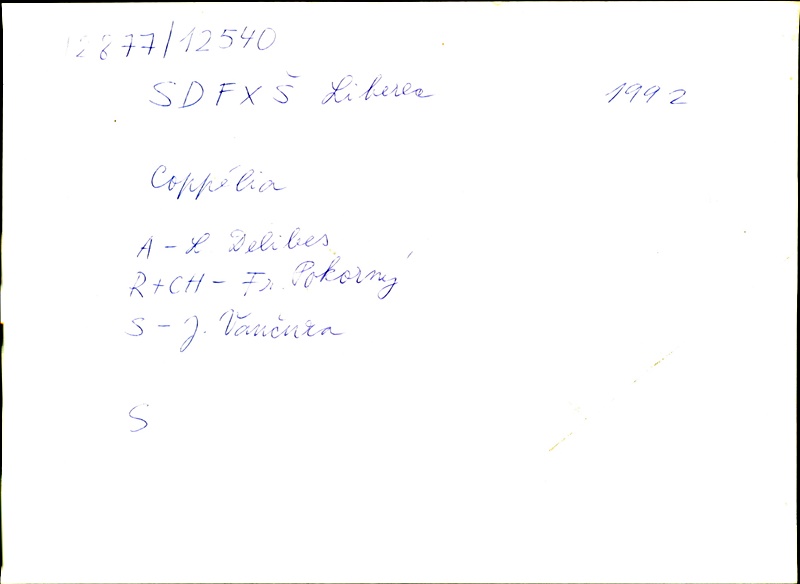 12877/12540
SDFXŠ Liberec 1992
Coppélia
A - L Delibes
R+CH - Fr. Pokorný
S - J. Vančura
S